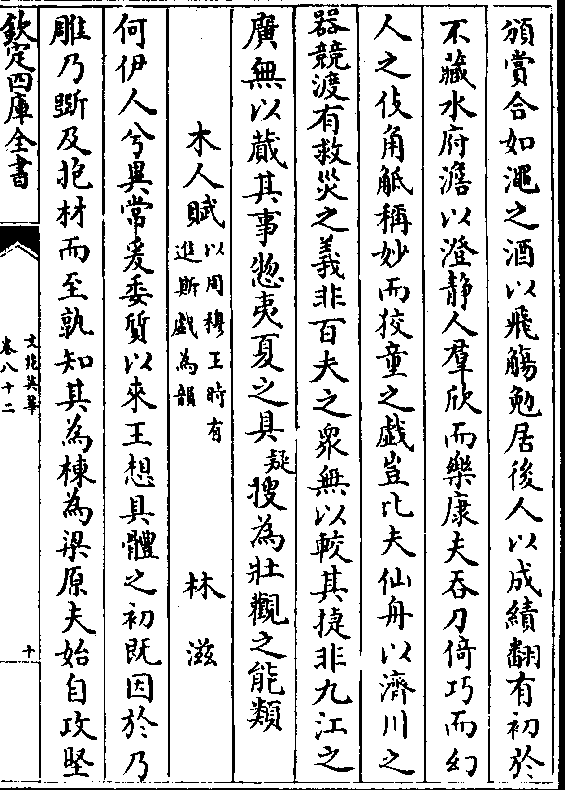 頒賞合如澠之酒以飛觴勉居後人以成績翻有初於
不藏水府澹以澄静人羣欣而樂康夫吞刀倚巧而幻
人之伎角觝稱妙而狡童之戲豈比夫仙舟以濟川之
器競渡有救災之義非百夫之衆無以較其捷非九江之
廣無以蕆其事惣夷夏之具疑搜為壯觀之能類
木人賦以周穆王時有進斯戲為韻 林滋
何伊人兮異常爰委質以來王想具體之初既因於乃
雕乃斵及抱材而至孰知其為棟為梁原夫始自攻堅
欽定四庫全書
文苑英華
卷八十二
十